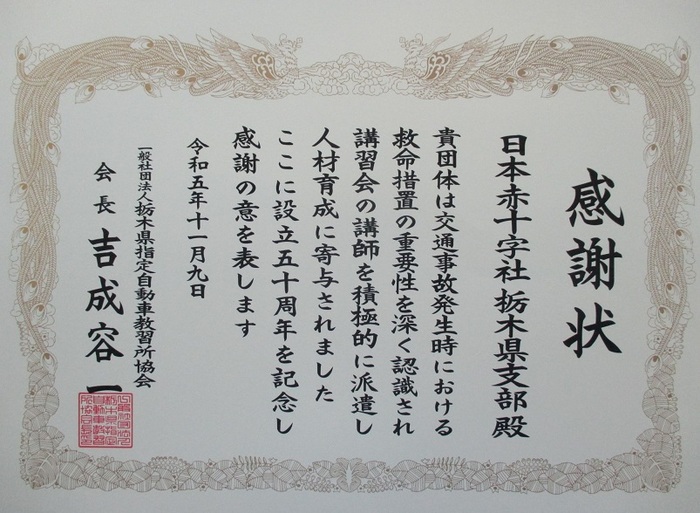 感謝状
日本赤十字社 栃木県支部殿
貴団体は交通事故発生時における
救命措置の重要性を深く認識され
講習会の講師を積極的に派遣し
人材育成に寄与されました
ここに設立五十周年を記念し
感謝の意を表します
令和五年十一月九日
一般社団法人栃木県指定自動車教習所協会
会長 吉成容一